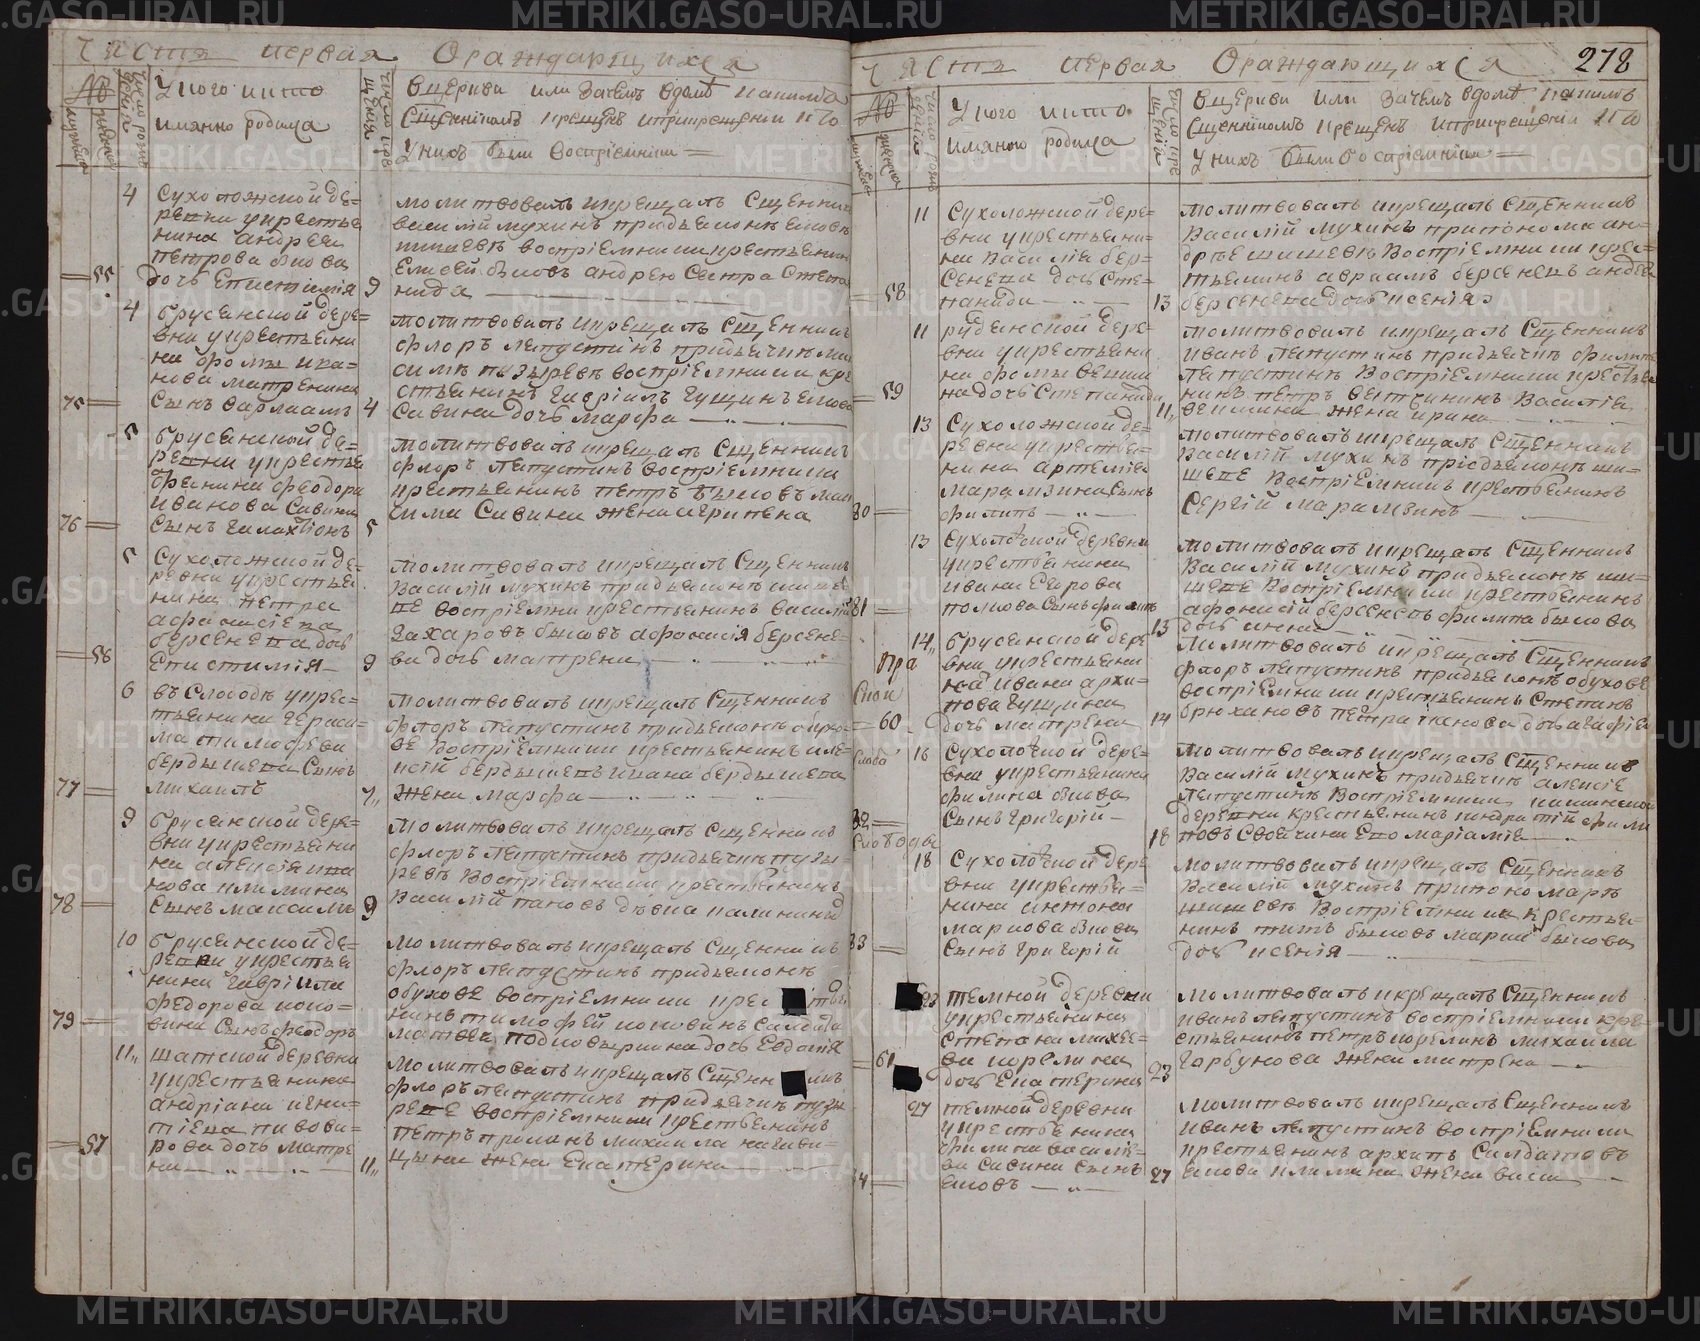 Часть первая Ораждающихся
№
У кого и кто
имянно родился
Число крещения
Вцеркви или Зачемъ вдомѣ и какимъ
Сщенникомъ Крещенъ и прикрещении Кто
У нихъ были воспріемники
4
Сухоложской де=
ревни укрестья
нина андрея
петрова быкова
дочь Епистимия
55
9
молитвовалъ икрещалъ Сщенникъ
василий мухинъ придьяконѣ яковѣ
шишевѣ воспріемники крестьянинъ
Елисей быковъ андрею сестра Степа
нида
4
брусянской дере=
вни укрестьяни
на фомы ива=
нова матренина
Сынъ варлаамъ
75
4
молитвовалъ икрещалъ Сщенникъ
флоръ Лапустинъ придьячкѣ мак
симѣ пузыревѣ воспріемники кре
стьянинъ Гавріилъ Гущинъ якова
Савина дочь марфа
5
брусянской де=
ревни укрестья
нина феодора
иванова Савина
Сынъ Галахтіонъ
76
5
молитвовалъ икрещалъ Сщенникъ
флоръ Лапустинъ воспріемники
крестьянинъ петръ быковъ мак
сима Савина жена агрипена
5
Сухоложской де=
ревни укрестья
нина петра
афанасіева
берсенева дочь
Епистимія
56
9
молитвовалъ икрещалъ Сщенникъ
Василій мухинъ придьяконѣ шише
ве воспріемники крестьянинъ василий
Захаровъ быковъ афонасія берсене=
ва дочь матрена
6
въ Слободѣ укрес=
тьянина Гераси=
ма тимофеева
бердышева Сынъ
михаилъ
77
7
молитвовалъ икрещалъ Сщенникъ
флоръ Лапустинъ придьяконѣ обухо=
ве воспріемники крестьянинъ але=
ксій бердышевъ ивана бердышева
жена марфа
9
брусянской дере=
вни укрестьяни
на алексія ива
нова климина
Сынъ максимъ
78
9
молитвовалъ икрещалъ Сщенникъ
флоръ Лапустинъ придьячкѣ пузы=
ревѣ воспріемники крестьянинъ
Василій пановъ дѣвка калинина
10
брусянской де=
ревни укрестья
нина Гавріила
федорова коко=
вина Сынъ феодоръ
79
молитвовалъ икрещалъ Сщенникъ
флоръ Лапустинъ придьяконѣ
обуховѣ воспріемники крестья
нинъ тимофей коковинъ Салдата
матвея подковыркина дочь Евдокія
11
шатской деревни
укрестьянина
андріана игна=
тіева пивова=
рова дочь матре
на
57
11
молитвовалъ икрещалъ Сщенникъ
флоръ Лапустинъ придьячкѣ пузы
реве воспріемники крестьянинъ
петръ пролинъ михаила нагиби=
цына жена Екатерина
Часть первая Ораждающихся
278
№
У кого и кто
имянно родился
Вцеркви или Зачемъ вдомѣ и какимъ
Сщенникомъ Крещенъ и прикрещеніи Кто
У нихъ были воспріемники
11
Сухоложской дере=
вни укрестьяни=
на Василія бер=
сенева дочь Сте=
панида
58
13
молитвовалъ икрещалъ Сщенникъ
Василій мухинъ припономаре ан=
дрее шишевѣ воспріемники крес=
тьянинъ авраамъ берсеневъ андрея
берсенева дочь ксенія
11
рудянской дере=
вни укрестьяни
на фомы вяткин
на дочь Степанида
59
11
молитвовалъ икрещалъ Сщенникъ
иванъ Лапустинъ придьячкѣ филипе
Лапустинѣ воспріемники крестья
нинъ петръ вяткинъ Василія
вяткина жена ирина
13
Сухоложской де=
ревни укрестья=
нина артемія
марамзина Сынъ
филипъ
80
молитвовалъ икрещалъ Сщенникъ
Василій мухинъ прідьяконѣ ши=
шеве воспріемникъ крестьянинъ
Сергій марамзинъ
13
Сухоложской деревни
укрестьянина
ивана Егорова
попкова Сынъ филипъ
81
13
молитвовалъ икрещалъ Сщенникъ
Василій мухинъ придьяконѣ ши=
шеве воспріемники крестьянинъ
афонасій берсеневъ филипа быкова
дочь анна
14
брусянской дере
вни укрестьяни
на ивана архи=
пова Гущина
дочь матрена
60
14
молитвовалъ икрещалъ Сщенникъ
флоръ Лапустинъ придьяконѣ обухове
воспріемники крестьянинъ Степанъ
брюхановъ петра панова дочь агафія
16
Сухоложской дере=
вни укрестьянина
филипа быкова
Сынъ григорій
82
18
молитвовалъ икрещалъ Сщенникъ
Василій мухинъ придьячкѣ алексіе
Лапустинѣ воспріемники
деревни крестьянинъ кондратій фили
повъ Своячина Его маріамія
18
Сухоложской дере
вни укрестья=
нина антона
маркова быкова
Сынъ григорій
83
молитвовалъ икрещалъ Сщенникъ
Василій мухинъ припономарѣ
шишевѣ воспріемники крестья=
нинъ титъ быковъ марка быкова
дочь ксенія
23
темной деревни
укрестьянина
Степана михее=
ва корелина
дочь Екатерина
61
23
молитвовалъ икрещалъ Сщенникъ
иванъ Лапустинъ воспріемники кре=
стьянинъ петръ корелинъ михаила
горбунова жена матрена
27
темной деревни
укрестьянина
филипа василіе=
ва Савина Сынъ
яковъ
84
27
молитвовалъ икрещалъ Сщенникъ
иванъ Лапустинъ воспріемники
крестьянинъ архипъ Салдатовъ
якова климина жена васса